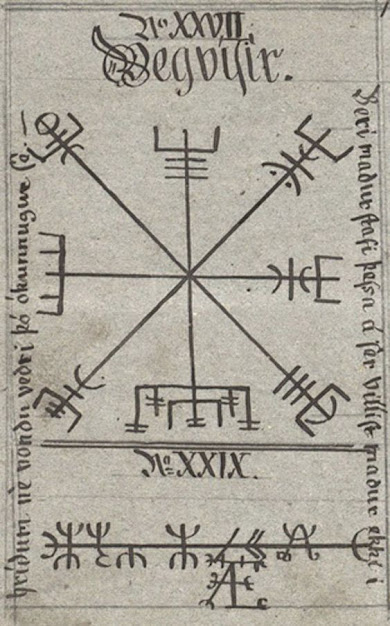 No XXVII.
Vegvísir.
Beri madur stafi þessa á sér villist madur ekki i
hrídum né vondu vedri þó ókunnugur sé.
No XXIX.